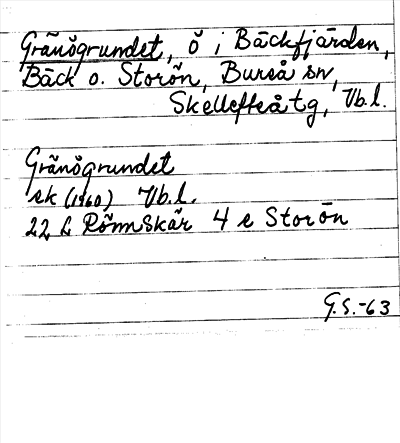 Gränögrundet, ö i Bäckfjärden,
Bäck o. Storön, Bureå sn,
Skellefteå tg, Vb.l.
Gränögrundet
ek (1960) Vb.l.
22 L Rönnskär 4 e Storön
G.S.-63